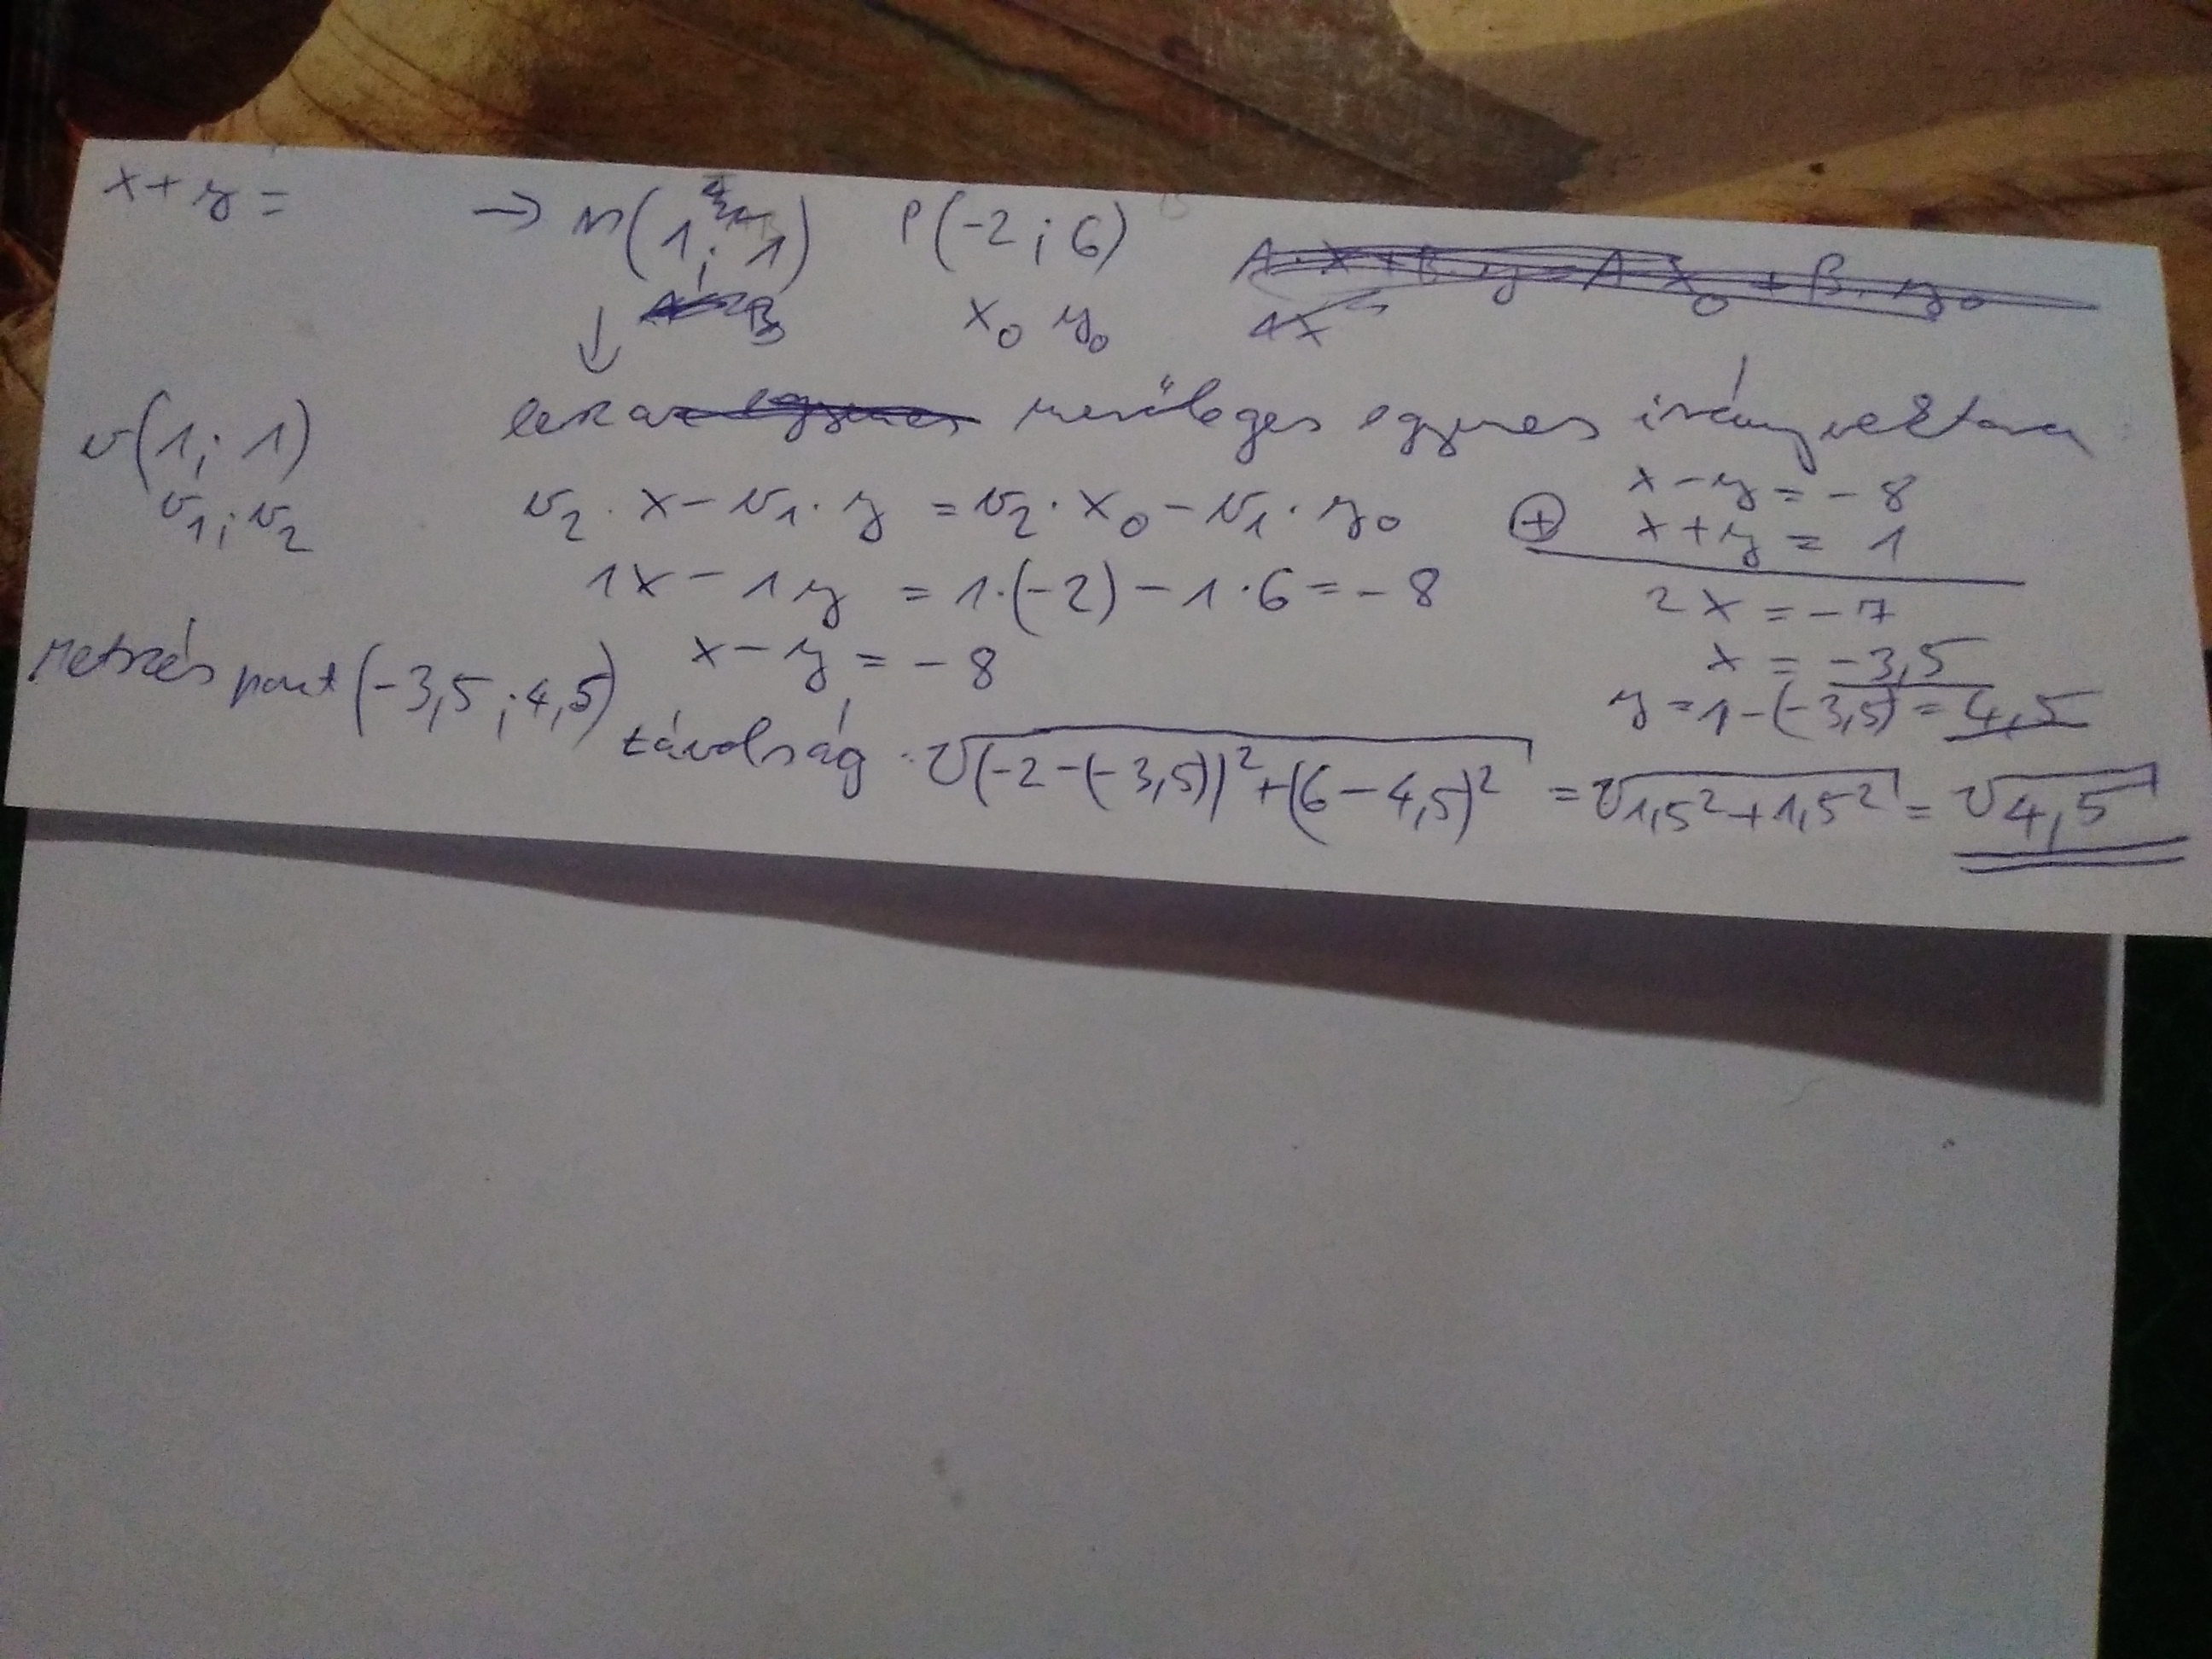 x + y = → n(1; 1) P(-2; 6)
A·x + B·y = A x₀ + B·y₀
x₀ y₀
↓
lesz a merőleges egyenes irányvektora
v(1; 1)
v₁; v₂
v₂ · x - v₁ · y = v₂ · x₀ - v₁ · y₀
1x - 1y = 1·(-2) - 1·6 = -8
x - y = -8
⊕ x - y = -8
x + y = 1
2x = -7
x = -3,5
y = 1-(-3,5) = 4,5
Metszés pont (-3,5 ; 4,5)
távolság √(-2-(-3,5))² + (6-4,5)² = √1,5² + 1,5² = √4,5